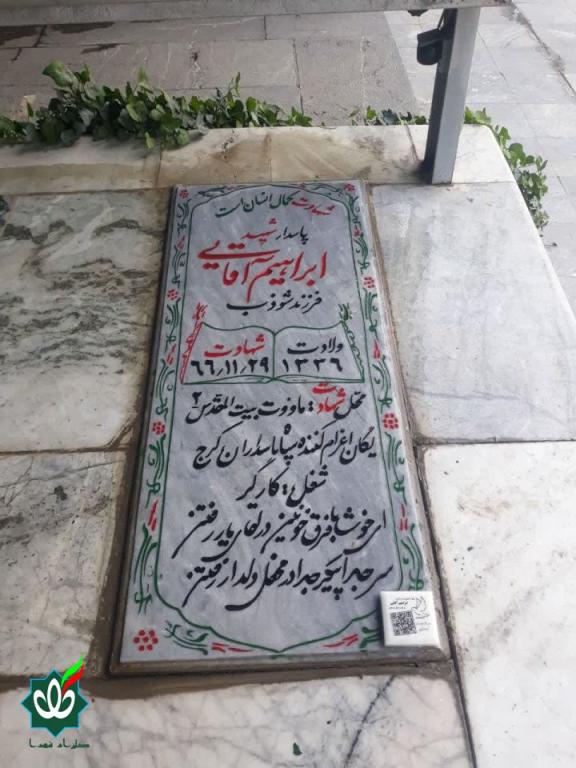 شهادت کمال انسان است
پاسدار شهید
ابراهیم آقایی
فرزند شوذب
ولادت
۱۳۳۶
شهادت
۶۶/۱۱/۲۹
محل شهادت: ماووت بیت المقدس ۲
یگان اعزام کننده سپاه پاسداران کرج
شغل: کارگر
ای خوشا با فرق خونین در لقای یار رفتن
سر جدا پیکر جدا در محفل دلدار رفتن
گلزار شهدا